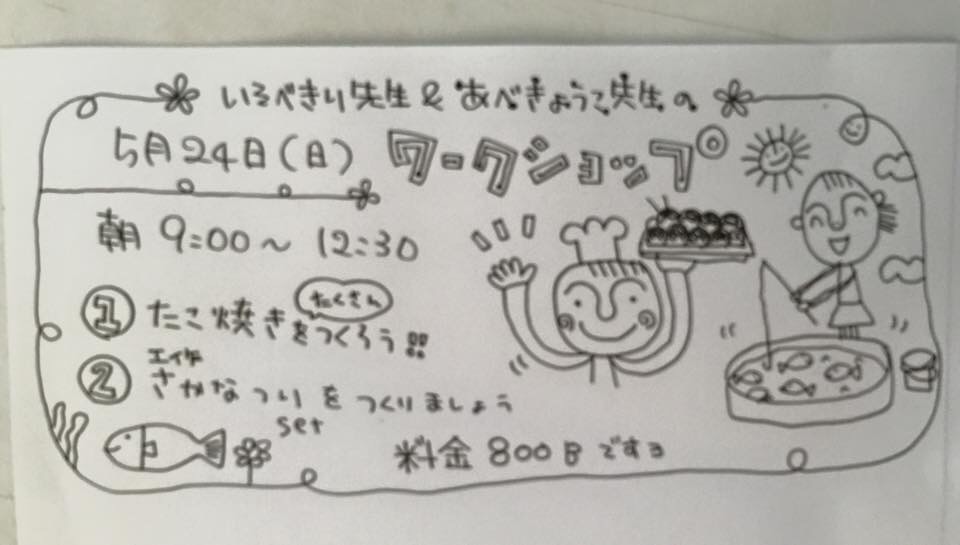 いろべきり先生&あべきょうこ先生の
5月24日(日) ワークショップ
朝 9:00〜12:30
① たこ焼きをたくさんつくろう!!
② さかなつりをつくりましょう
set
料金 800B ですョ